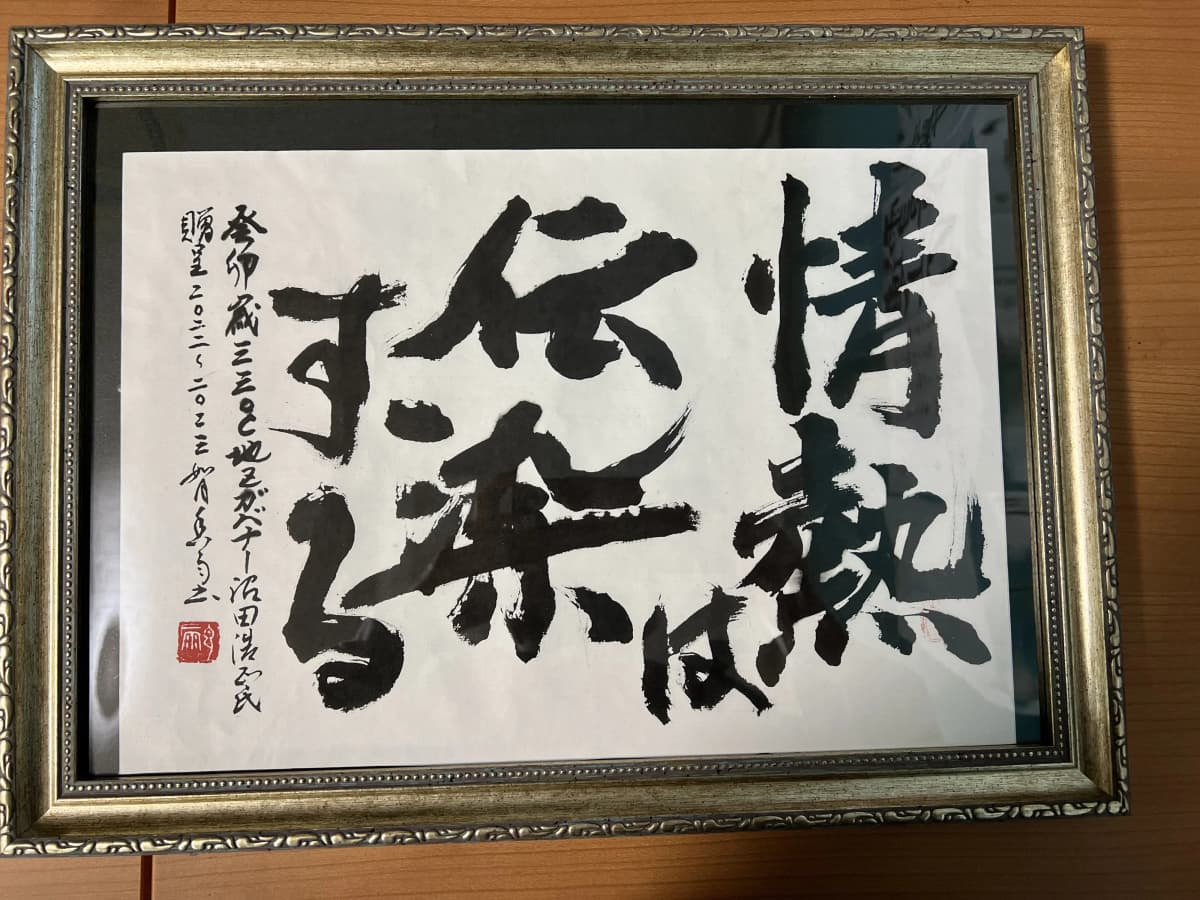 情熱は
伝染
する
癸卯歳 三三〇-C地区ガバナー 沼田浩正氏
贈呈 二〇二二〜二〇二三 如月